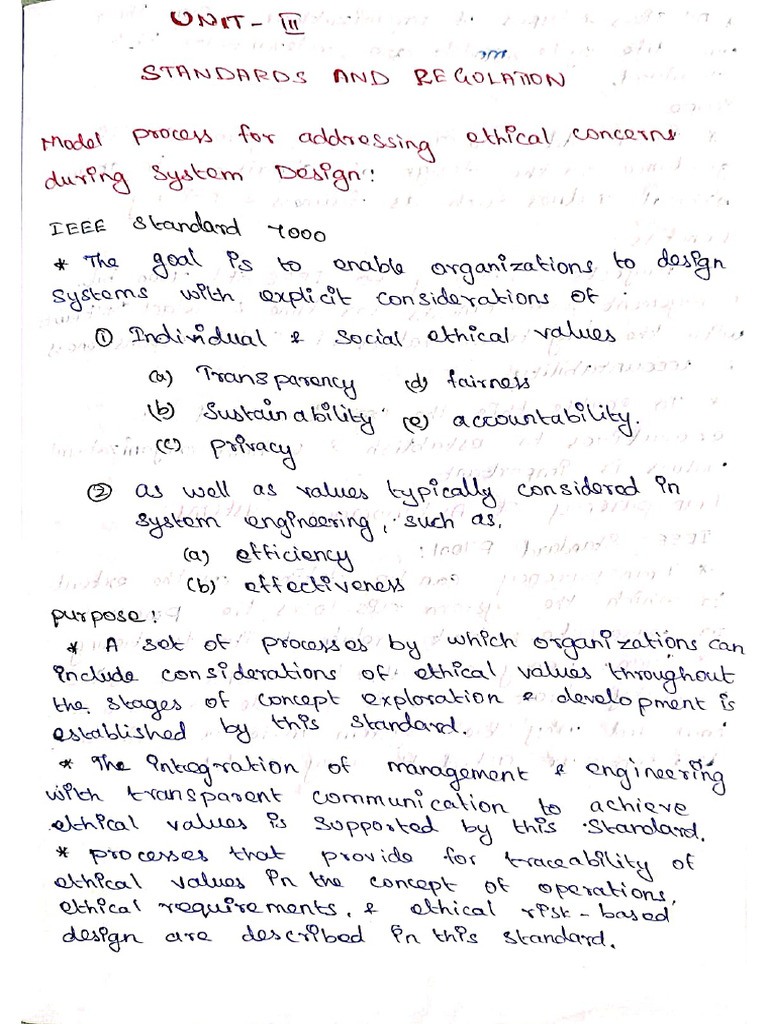 UNIT - III
STANDARDS AND REGULATION
Model process for addressing ethical concerns
during System Design:
IEEE Standard 7000
* The goal is to enable organizations to design
systems with explicit considerations of
① Individual & Social ethical values
(a) Transparency (d) fairness
(b) Sustainability (e) accountability.
(c) privacy
② as well as values typically considered in
system engineering, such as,
(a) efficiency
(b) effectiveness
purpose:
* A set of processes by which organizations can
include considerations of ethical values throughout
the stages of concept exploration & development is
established by this standard.
* The integration of management & engineering
with transparent communication to achieve
ethical values is supported by this Standard.
* processes that provide for traceability of
ethical values in the concept of operations,
ethical requirements, & ethical risk-based
design are described in this standard.